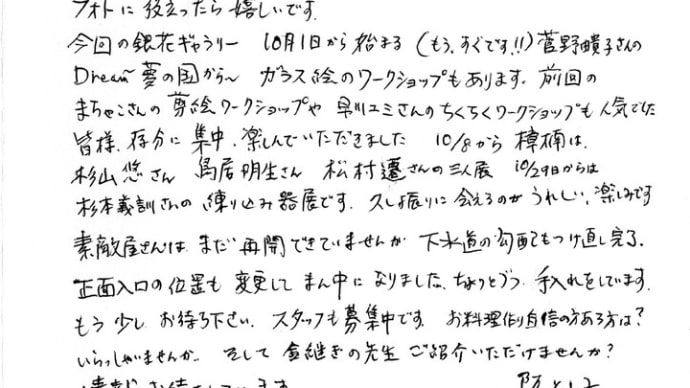 フォトに役立ったら嬉しいです.
今回の銀花ギャラリー 10月1日から始まる (もう,すぐです!!) 菅野晴子さんの
Dream〜夢の国から〜 ガラス絵のワークショップもあります. 前回の
まちゃこさんの剪絵ワークショップや 早川ユミさんのちくちくワークショップも人気でした
皆様, 存分に集中, 楽しんでいただきました 10/8から 樟楠は,
杉山悠さん 鳥居明生さん 松村遷さんの三人展 10/29日からは
杉本義訓さんの練り込み器展です. 久し振りに会えるのがうれしい, 楽しみです
素敵屋さんは まだ再開できていませんが 下水道の勾配もつけ直し完了.
正面入口の位置も変更して まん中になりました, ちょっとづつ 手入れをしています.
もう少し お待ち下さい. スタッフも募集中です. お料理作り自信の方ある方は?
いらっしゃいませんか. そして 金継ぎの先生 ご紹介いただけませんか?